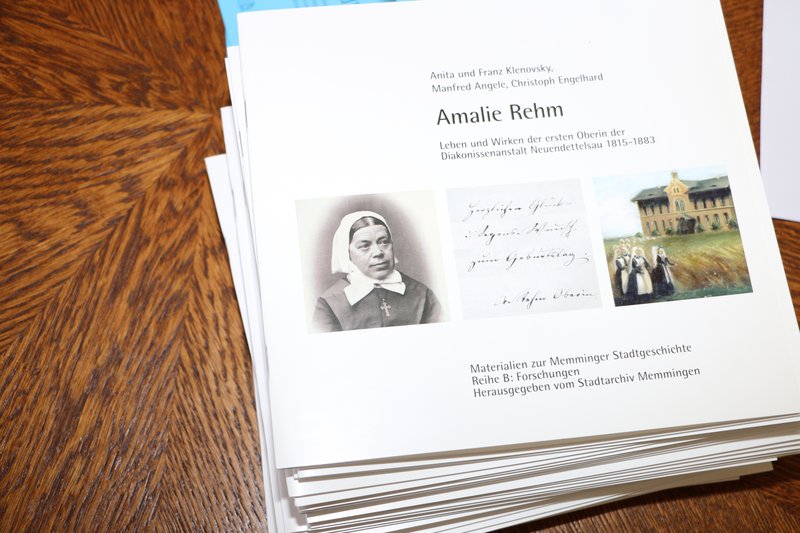 Anita und Franz Klenovsky,
Manfred Angele, Christoph Engelhard
Amalie Rehm
Leben und Wirken der ersten Oberin der
Diakonissenanstalt Neuendettelsau 1815-1883
Herzlichen Glück-
u. Segens Wunsch
zum Geburtstag
A. Rehm Oberin.
Materialien zur Memminger Stadtgeschichte
Reihe B: Forschungen
Herausgegeben vom Stadtarchiv Memmingen